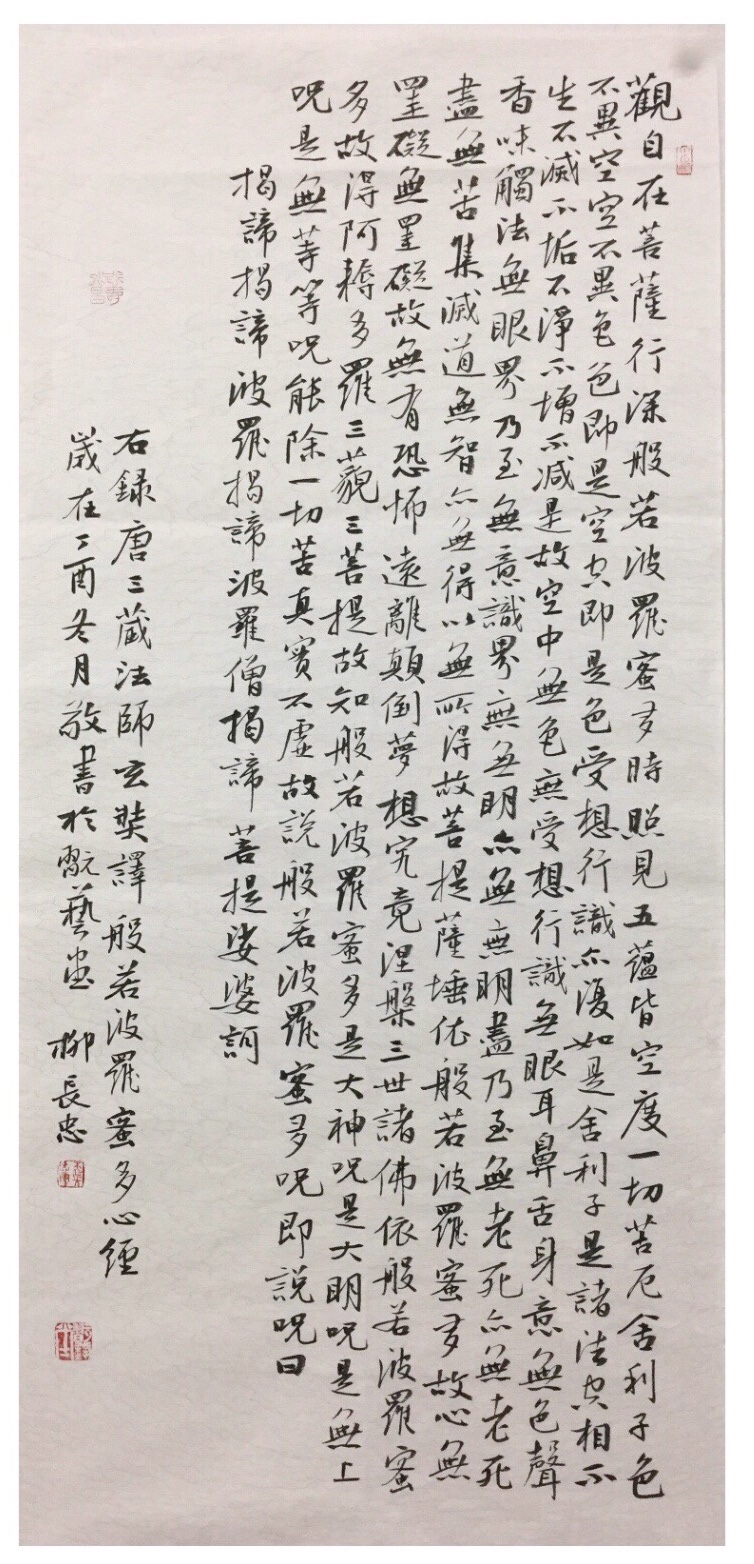 觀自在菩薩行深般若波羅蜜多時照見五蘊皆空度一切苦厄舍利子色
不異空空不異色色即是空空即是色受想行識亦復如是舍利子是諸法空相不
生不滅不垢不淨不增不減是故空中無色無受想行識無眼耳鼻舌身意無色聲
香味觸法無眼界乃至無意識界無無明亦無無明盡乃至無老死亦無老死
盡無苦集滅道無智亦無得以無所得故菩提薩埵依般若波羅蜜多故心無
罣礙無罣礙故無有恐怖遠離顛倒夢想究竟涅槃三世諸佛依般若波羅蜜
多故得阿耨多羅三藐三菩提故知般若波羅蜜多是大神呪是大明呪是無上
呪是無等等呪能除一切苦真實不虛故說般若波羅蜜多呪即說呪曰
揭諦揭諦波羅揭諦波羅僧揭諦菩提娑婆訶
右錄唐三藏法師玄奘譯般若波羅蜜多心經
歲在丁酉冬月敬書於翫藝堂 柳長忠